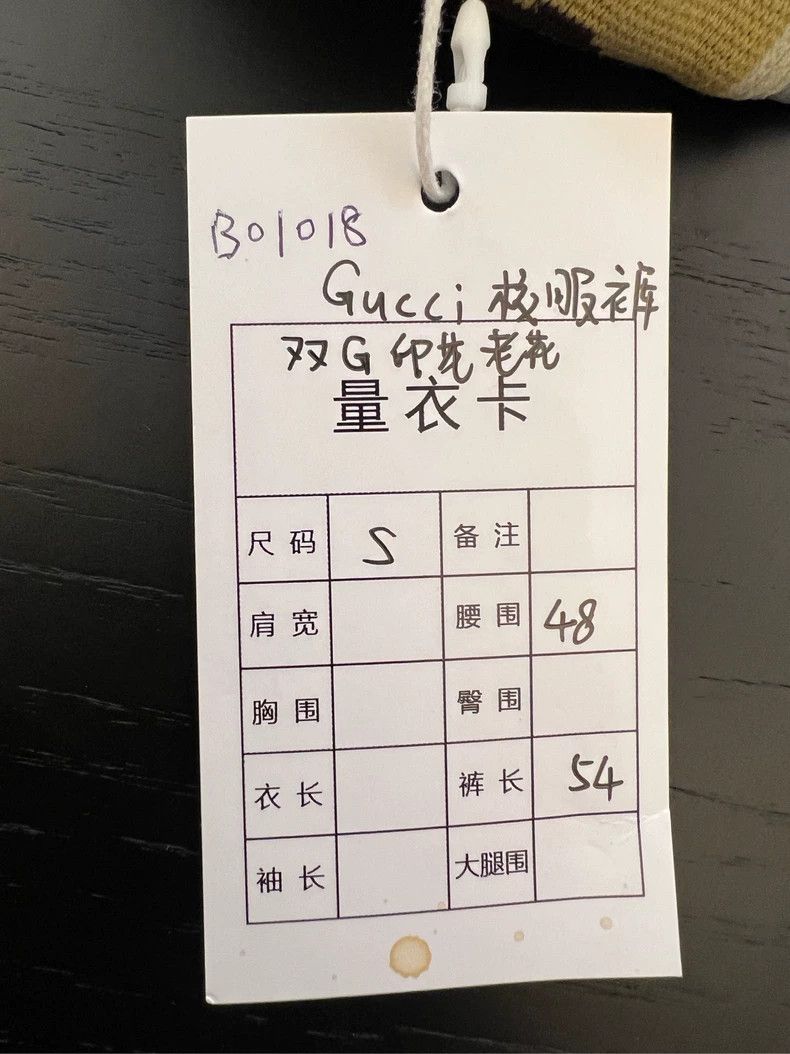 B01018
Gucci 校服裤
双G印花老花
量衣卡
尺码 S 备注
肩宽 腰围 48
胸围 臀围
衣长 裤长 54
袖长 大腿围